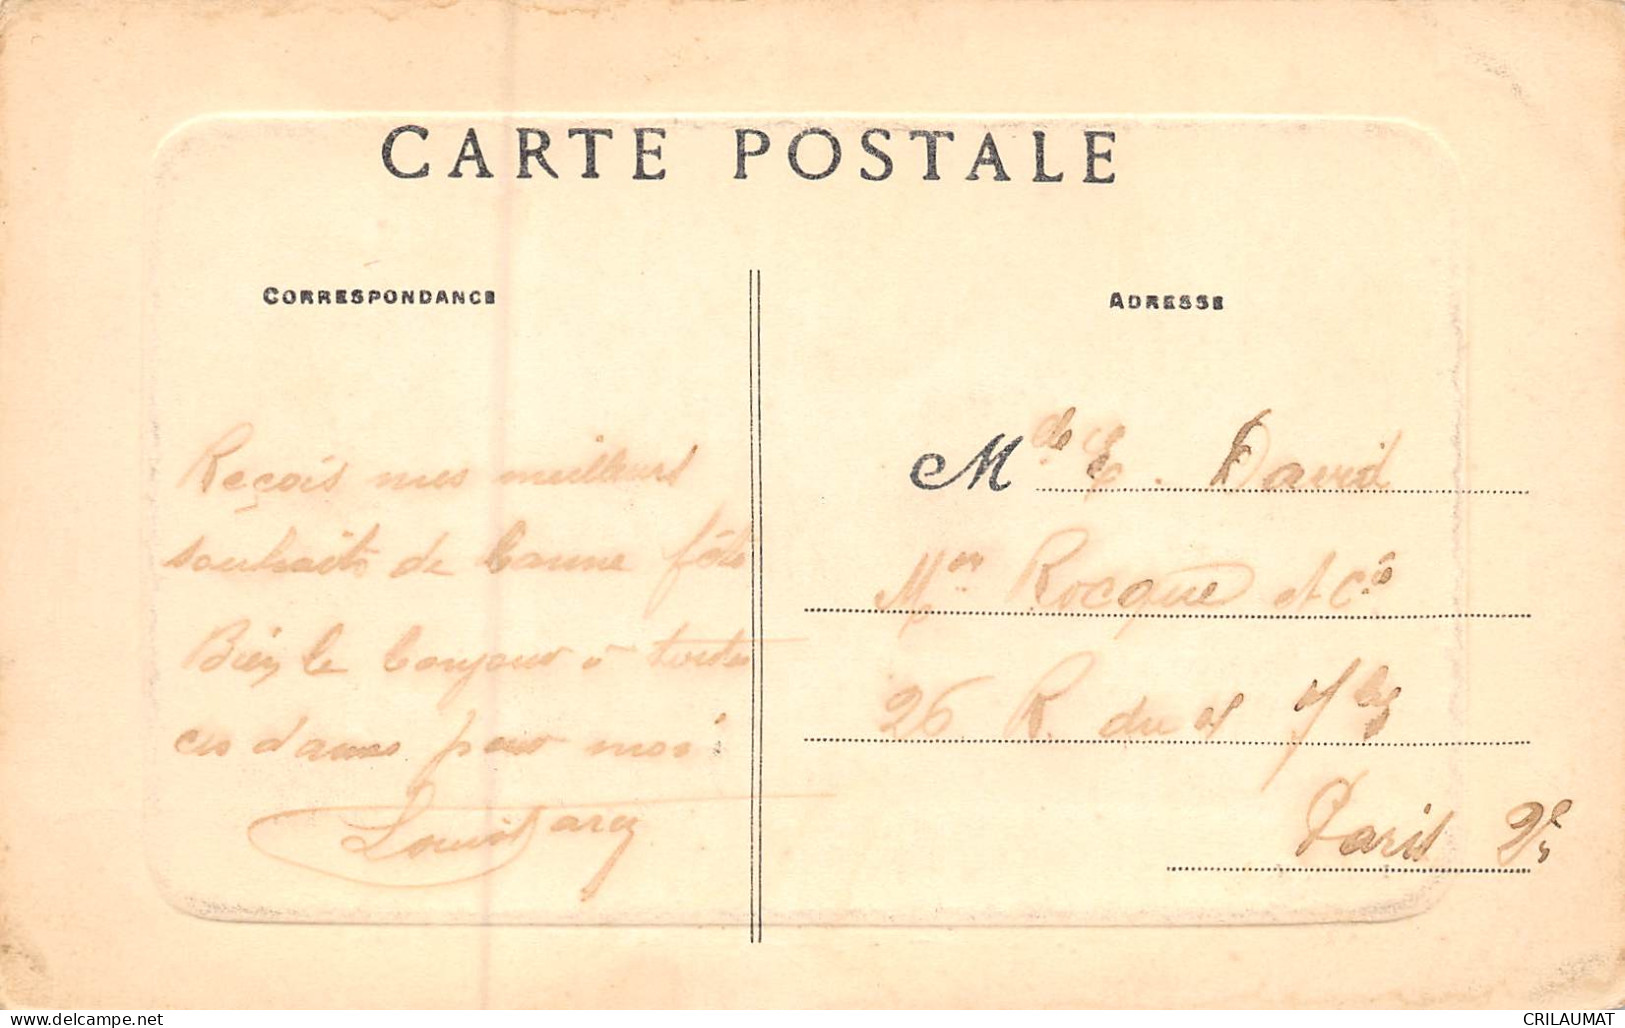 CARTE POSTALE
CORRESPONDANCE
Reçois mes meilleurs
souhaits de bonne fête
Bien le bonjour à toutes
ces dames pour moi
Louis
ADRESSE
Mde E. David
Mon Rocque et Cie
26 R. du 4 7bre
Paris 2e
CRILAUMAT